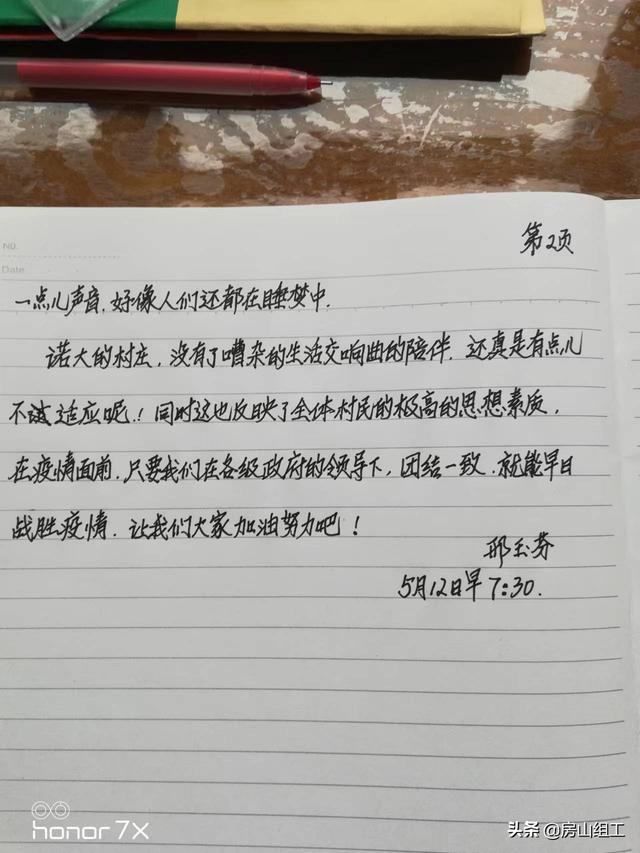 No.
Date
第2页
一点儿声音.好像人们还都在睡梦中.
诺大的村庄,没有了嘈杂的生活交响曲的陪伴.还真是有点儿
不适应呢!同时这也反映了全体村民的极高的思想素质.
在疫情面前.只要我们在各级政府的领导下,团结一致.就能早日
战胜疫情.让我们大家加油努力吧!
邢玉芬
5月12日早7:30.
honor 7X
头条@房山组工